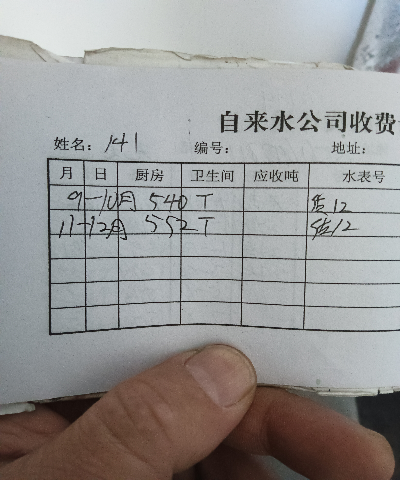 自来水公司收费
姓名: 141 编号: 地址:
月 日 厨房 卫生间 应收吨 水表号
9-10月 540T 12
11-12月 552T 12